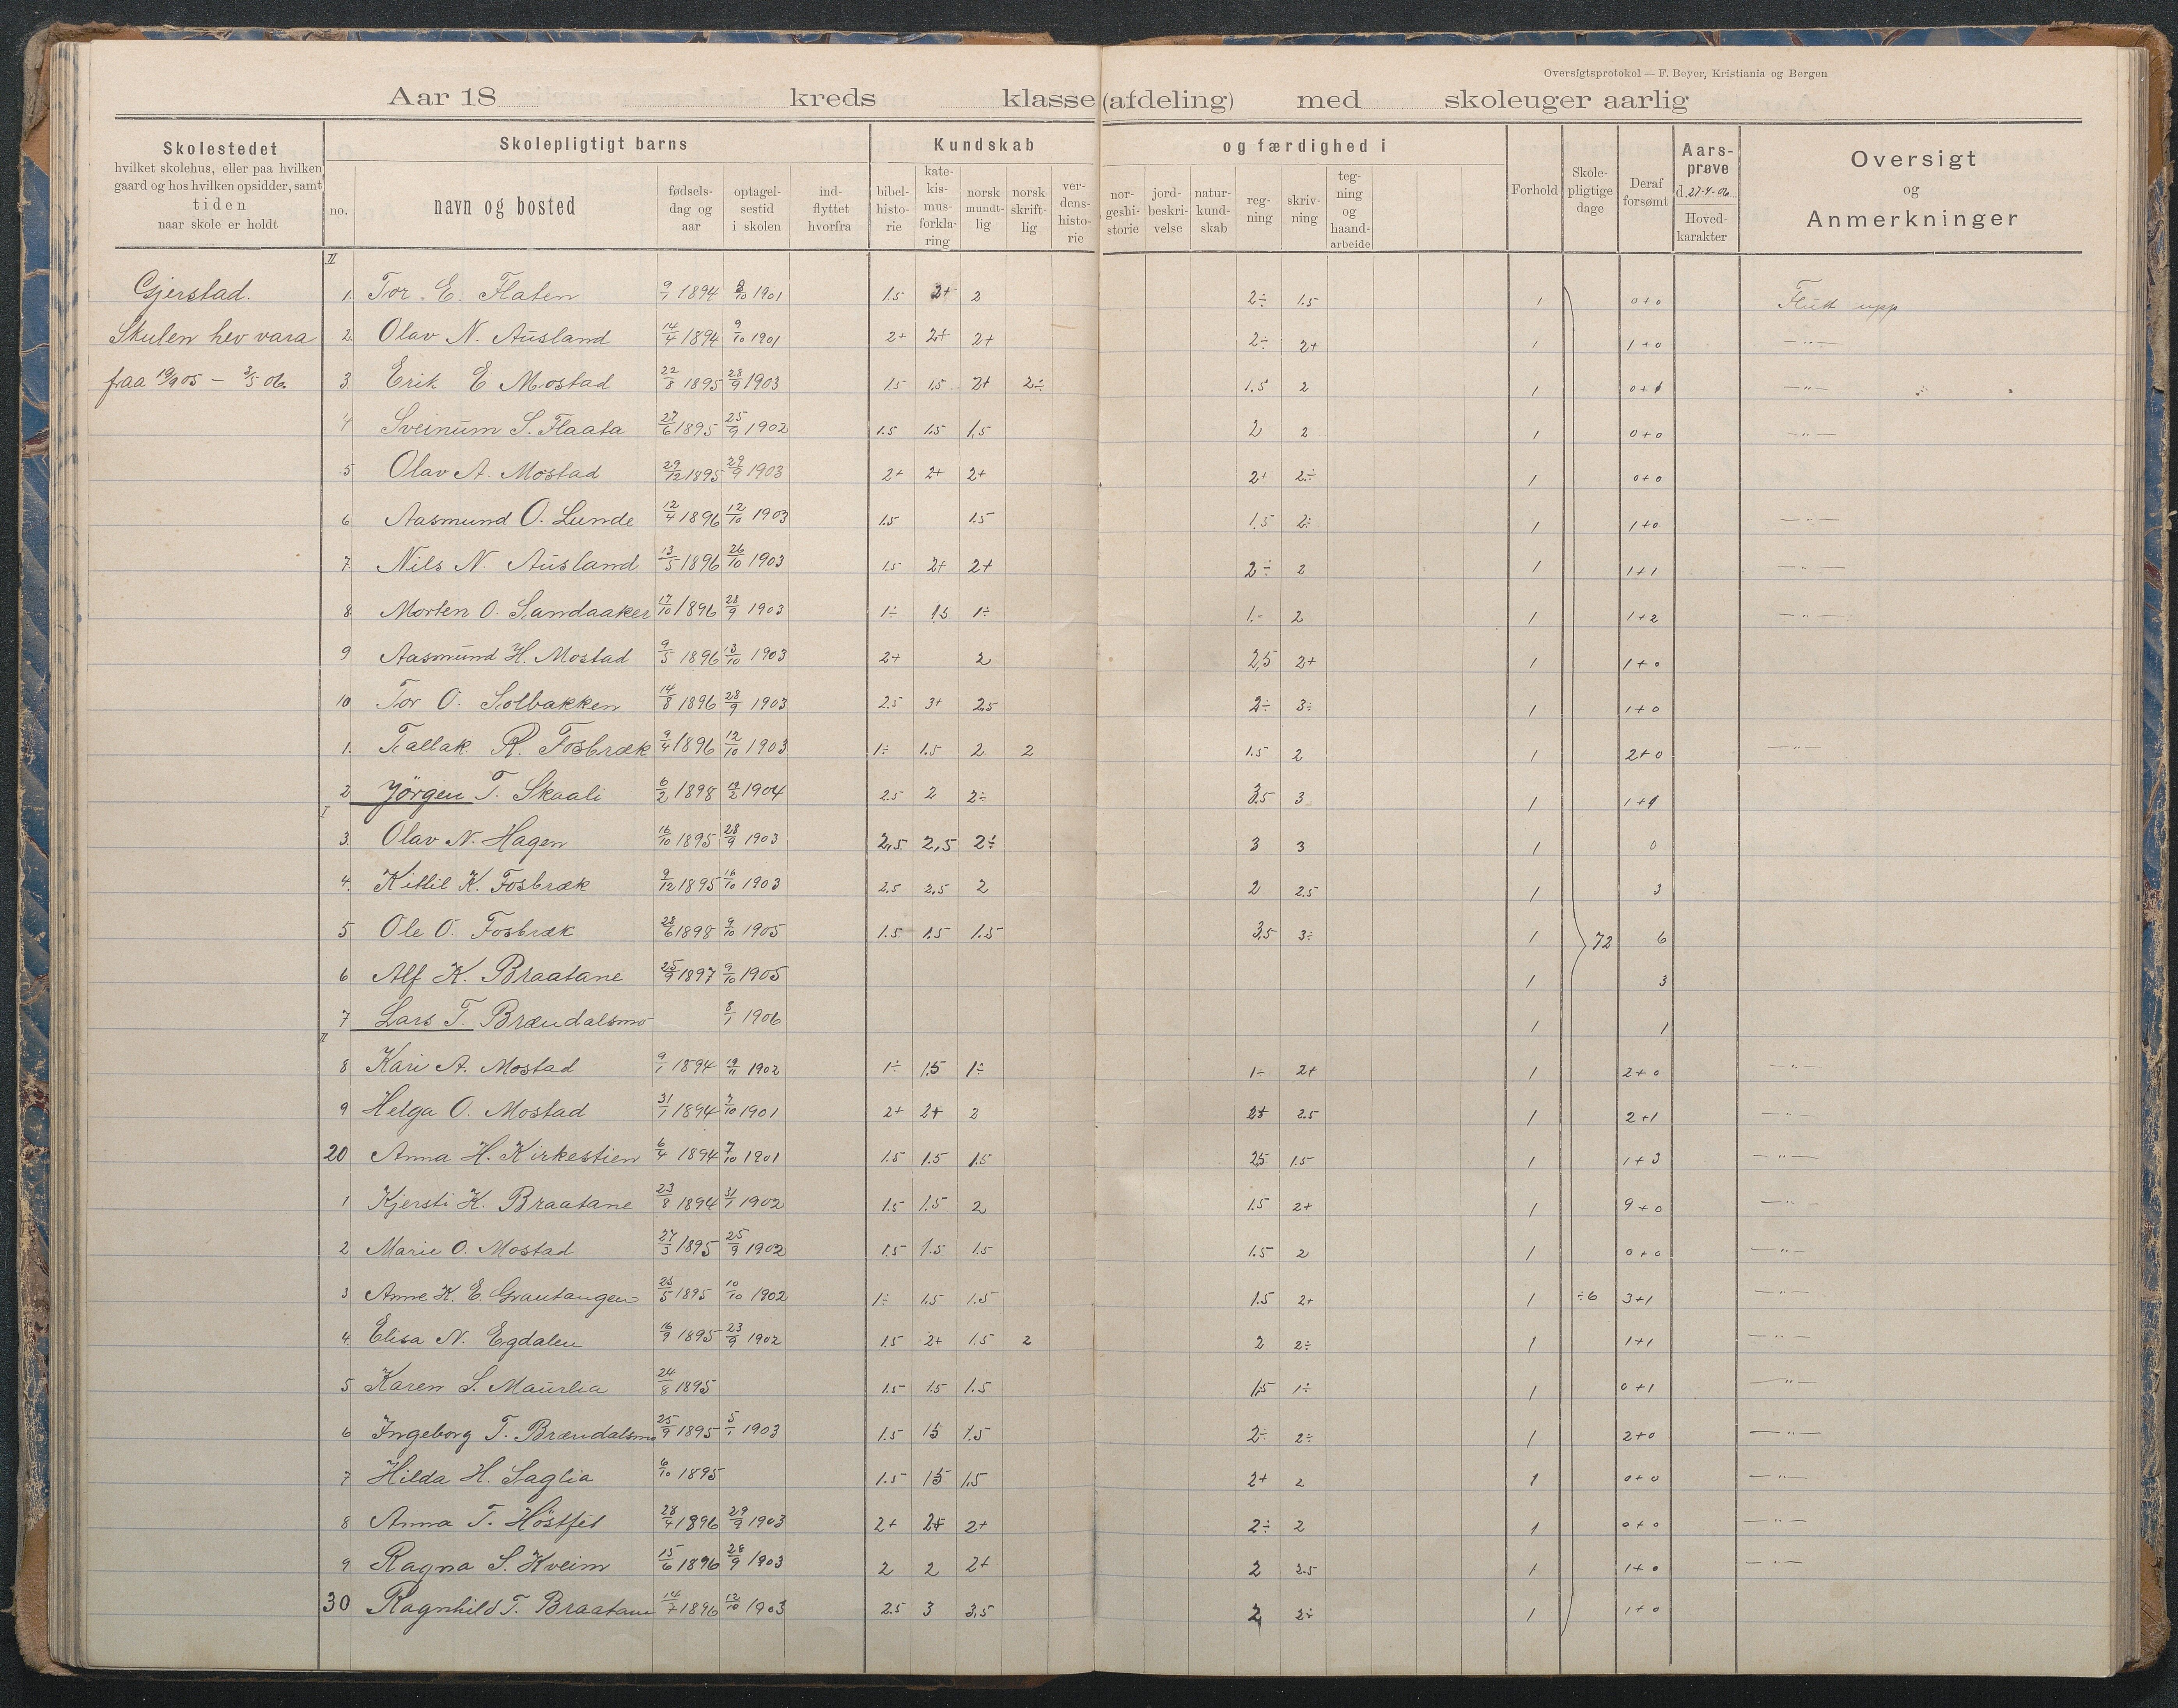 Oversigtsprotokol — F. Beyer, Kristiania og Bergen
Aar 18 kreds klasse (afdeling) med skoleuger aarlig
Skolestedet hvilket skolehus, eller paa hvilken gaard og hos hvilken opsidder, samt tiden naar skole er holdt
Skolepligtigt barns
no. navn og bosted fødsels-dag og aar optagel-sestid i skolen ind-flyttet hvorfra
Kundskab og færdighed i
bibel-histo-rie kate-kis-mus-forkla-ring norsk mundt-lig norsk skrift-lig ver-dens-histo-rie nor-geshi-storie jord-beskri-velse natur-kund-skab reg-ning skriv-ning teg-ning og haand-arbeide
Forhold Skole-pligtige dage Deraf forsømt Aars-prøve d. 27-4-06 Hoved-karakter
Oversigt og Anmerkninger
II
Gjerstad. 1. Tor E. Flaten 9/1 1894 8/10 1901 1.5 2+ 2 2÷ 1.5 1 0+0 Flutt upp
Skulen hev vara 2. Olav N. Ausland 14/4 1894 9/10 1901 2+ 2+ 2+ 2÷ 2+ 1 1+0 —"—
fraa 19/9 05 — 3/5 06. 3. Erik E Mostad 22/8 1895 28/9 1903 1.5 1.5 2+ 2÷ 1.5 2 1 0+1 —"—
4 Sveinum S. Flaata 27/6 1895 25/9 1902 1.5 1.5 1.5 2 2 1 0+0 —"—
5 Olav A. Mostad 29/12 1895 29/9 1903 2+ 2+ 2+ 2+ 2÷ 1 0+0
6 Aasmund O. Lunde 12/4 1896 12/10 1903 1.5 1.5 1.5 2÷ 1 1+0 —"—
7. Nils N. Ausland 13/5 1896 26/10 1903 1.5 2+ 2+ 2÷ 2 1 1+1 —"—
8. Morten O. Sandaaker 17/10 1896 28/9 1903 1÷ 1.5 1÷ 1.- 2 1 1+2 —"—
9 Aasmund H. Mostad 9/5 1896 13/10 1903 2+ 2 2,5 2+ 1 1+0
10 Tor O. Solbakken 14/8 1896 28/9 1903 2.5 3+ 2.5 2÷ 3÷ 1 1+0
1. Tallak R. Fosbræk 9/4 1896 12/10 1903 1÷ 1.5 2 2 1.5 2 1 2+0 —"—
2 Jörgen T. Skaali 6/2 1898 19/2 1904 2.5 2 2÷ 3.5 3 1 1+1
I
3. Olav N. Hagen 16/10 1895 28/9 1903 2,5 2,5 2÷ 3 3 1 0
4. Kittil K. Fosbræk 9/12 1895 16/10 1903 2.5 2.5 2 2 2.5 1 3
5 Ole O. Fosbræk 28/6 1898 9/10 1905 1.5 1.5 1.5 3.5 3÷ 1 72 6
6 Alf K. Braatane 25/9 1897 9/10 1905 1 3
7 Lars T. Brændalsmo 8/1 1906 1 1
II
8 Kari A. Mostad 9/1 1894 19/11 1902 1÷ 1.5 1÷ 1÷ 2+ 1 2+0 —"—
9 Helga O. Mostad 31/1 1894 7/10 1901 2+ 2+ 2 2+ 2.5 1 2+1 —"—
20 Anna H. Kirkestien 6/4 1894 7/10 1901 1.5 1.5 1.5 2.5 1.5 1 1+3 —"—
1 Kjersti K. Braatane 23/8 1894 31/1 1902 1.5 1.5 2 1.5 2+ 1 9+0 —"—
2 Marie O. Mostad 27/3 1895 25/9 1902 1.5 1.5 1.5 1.5 2 1 0+0 —"—
3 Anne K. E. Grautangen 25/5 1895 10/10 1902 1÷ 1.5 1.5 1.5 2+ 1 ÷6 3+1 —"—
4. Elisa N. Egdalen 16/9 1895 23/9 1902 1.5 2+ 1.5 2 2 2÷ 1 1+1 —"—
5 Karen S. Maurlia 24/8 1895 1.5 1.5 1.5 1,5 1÷ 1 0+1 —"—
6 Ingeborg T. Brændalsmo 25/9 1895 5/1 1903 1.5 1.5 1.5 2÷ 2÷ 1 2+0 —"—
7 Hilda H. Saglia 6/10 1895 1.5 1.5 1.5 2+ 2 1 0+0 —"—
8 Anna T. Höstfet 28/4 1896 29/9 1903 2+ 2+ 2+ 2÷ 2 1 0+0 —"—
9 Ragna S. Kveim 15/6 1896 28/9 1903 2 2 2+ 2 2.5 1 1+0 —"—
30 Ragnhild T. Braatane 14/7 1896 12/10 1903 2.5 3 3,5 2 2÷ 1 1+0